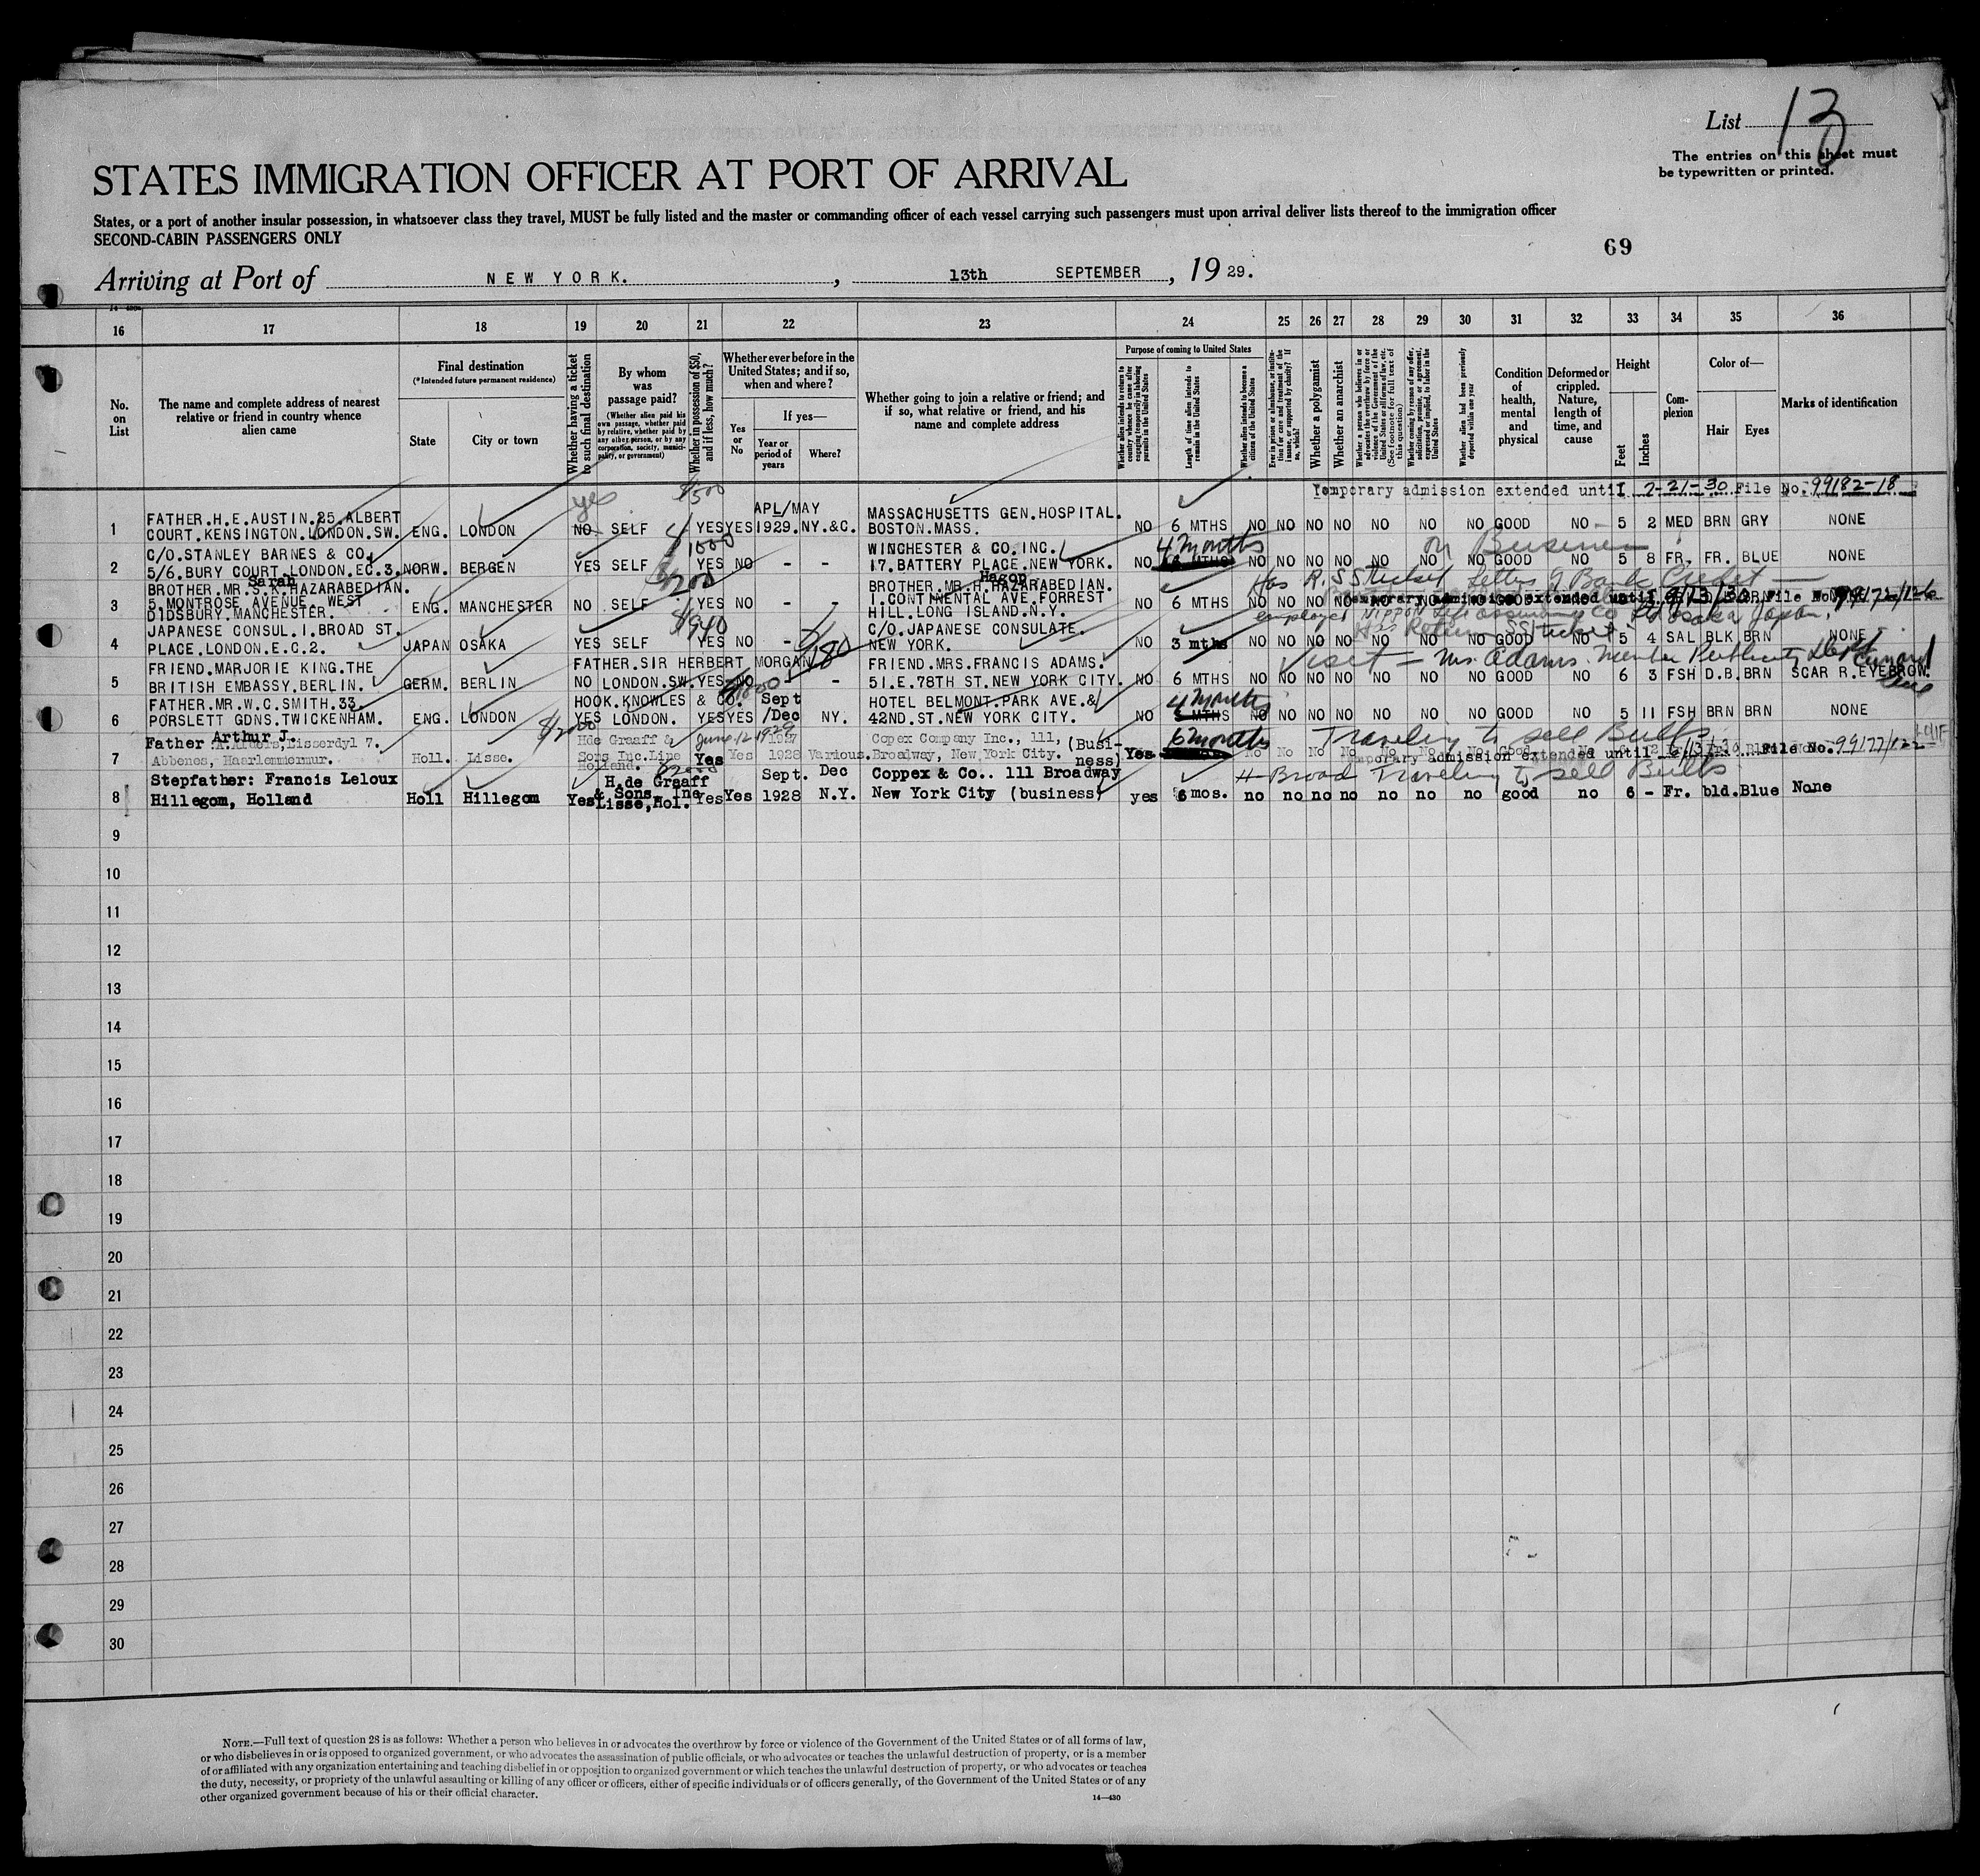 List 13
The entries on this sheet must
be typewritten or printed.
STATES IMMIGRATION OFFICER AT PORT OF ARRIVAL
States, or a port of another insular possession, in whatsoever class they travel, MUST be fully listed and the master or commanding officer of each vessel carrying such passengers must upon arrival deliver lists thereof to the immigration officer
SECOND-CABIN PASSENGERS ONLY
69
Arriving at Port of NEW YORK. , 13th SEPTEMBER , 19 29.
16 17 18 19 20 21 22 23 24 25 26 27 28 29 30 31 32 33 34 35 36
No. on List
The name and complete address of nearest relative or friend in country whence alien came
Final destination
(*Intended future permanent residence)
State
City or town
Whether having a ticket to such final destination
By whom was passage paid?
(Whether alien paid his own passage, whether paid by relative, whether paid by any other person, or by any corporation, society, municipality, or government)
Whether in possession of $50, and if less, how much?
Whether ever before in the United States; and if so, when and where?
Yes or No
If yes—
Year or period of years
Where?
Whether going to join a relative or friend; and if so, what relative or friend, and his name and complete address
Purpose of coming to United States
Whether alien intends to return to country whence he came after engaging temporarily in laboring pursuits in the United States
Length of time alien intends to remain in the United States
Whether alien intends to become a citizen of the United States
Ever in prison or almshouse, or institution for care and treatment of the insane, or supported by charity? If so, which?
Whether a polygamist
Whether an anarchist
Whether a person who believes in or advocates the overthrow by force or violence of the Government of the United States or all forms of law, etc. (See footnote for full text of this question)
Whether coming by reason of any offer, solicitation, promise, or agreement, expressed or implied, to labor in the United States
Whether alien had been previously deported within one year
Condition of health, mental and physical
Deformed or crippled. Nature, length of time, and cause
Height
Feet
Inches
Complexion
Color of—
Hair
Eyes
Marks of identification
yes $/500 Temporary admission extended until 2-21-30 File No. 99182-18
1 FATHER.H.E.AUSTIN.25.ALBERT COURT.KENSINGTON.LONDON.SW. ENG. LONDON NO SELF YES YES APL/MAY 1929. NY.&C. MASSACHUSETTS GEN.HOSPITAL. BOSTON.MASS. NO 6 MTHS NO NO NO NO NO NO NO GOOD NO 5 2 MED BRN GRY NONE
$/1000 4 months on Business
2 C/O.STANLEY BARNES & CO. 5/6.BURY COURT.LONDON.EC.3. NORW. BERGEN YES SELF YES NO - - WINCHESTER & CO.INC. 17.BATTERY PLACE.NEW YORK. NO NO NO NO NO NO NO NO GOOD NO 5 8 FR. FR. BLUE NONE
Sarah $/200 Hagop Has R.S.S Ticket Letter of Bank Credit
3 BROTHER.MR.S.K.HAZARABEDIAN. 5.MONTROSE AVENUE. WEST DIDSBURY.MANCHESTER. ENG. MANCHESTER NO SELF YES NO - - BROTHER.MR.H.HAZARABEDIAN. 1.CONTINENTAL AVE.FORREST HILL.LONG ISLAND.N.Y. NO 6 MTHS NO NO NO NO
Temporary admission extended until 9/13/30 File No. 99172/126
$/940 employed Nippon Life Assurance Co Ltd Osaka Japan.
Has Return SS Ticket
4 JAPANESE CONSUL.1.BROAD ST. PLACE.LONDON.E.C.2. JAPAN OSAKA YES SELF YES NO - C/O.JAPANESE CONSULATE. NEW YORK. NO 3 mths NO NO NO NO NO NO NO GOOD NO 5 4 SAL BLK BRN NONE
$/180 Visit - Mrs. Adams. member Publicity Dept Cunard Line
5 FRIEND.MARJORIE KING.THE BRITISH EMBASSY.BERLIN. GERM. BERLIN NO FATHER.SIR HERBERT MORGAN LONDON.SW. YES NO - - FRIEND.MRS.FRANCIS ADAMS. 51.E.78TH ST.NEW YORK CITY. NO 6 MTHS NO NO NO NO NO NO NO GOOD NO 6 3 FSH D.B. BRN SCAR R.EYEBROW.
4 months
6 FATHER.MR.W.C.SMITH.33. PORSLETT GDNS.TWICKENHAM. ENG. LONDON YES HOOK.KNOWLES & CO. LONDON. YES YES Sept /Dec NY. HOTEL BELMONT.PARK AVE.& 42ND.ST.NEW YORK CITY. NO NO NO NO NO NO NO NO GOOD NO 5 11 FSH BRN BRN NONE
Arthur J. $/2000 June 12-1929 6 months Traveling to sell Bulbs
7 Father Lisserdyl 7. Abbenes, Haarlemmermur. Holl. Lisse. Hde Graaff & Sons Inc. Line Holland. Yes Yes 1927 1928 Various. Copex Company Inc., 111, Broadway, New York City. (Business) Yes No No No No No No No Good No
Temporary admission extended until 6/13/30 File No. 99177/122
Traveling to sell Bulbs
8 Stepfather: Francis Leloux Hillegom, Holland Holl Hillegom Yes H.de Graaff & Sons, Inc Lisse, Hol. Yes Yes Sept. Dec 1928 N.Y. Coppex & Co.. 111 Broadway New York City (business) yes 6 mos. no no no no no no no good no 6 - Fr. bld. Blue None
9
10
11
12
13
14
15
16
17
18
19
20
21
22
23
24
25
26
27
28
29
30
NOTE.—Full text of question 28 is as follows: Whether a person who believes in or advocates the overthrow by force or violence of the Government of the United States or of all forms of law,
or who disbelieves in or is opposed to organized government, or who advocates the assassination of public officials, or who advocates or teaches the unlawful destruction of property, or is a member
of or affiliated with any organization entertaining and teaching disbelief in or opposition to organized government or which teaches the unlawful destruction of property, or who advocates or teaches
the duty, necessity, or propriety of the unlawful assaulting or killing of any officer or officers, either of specific individuals or of officers generally, of the Government of the United States or of any
other organized government because of his or their official character.
14—430